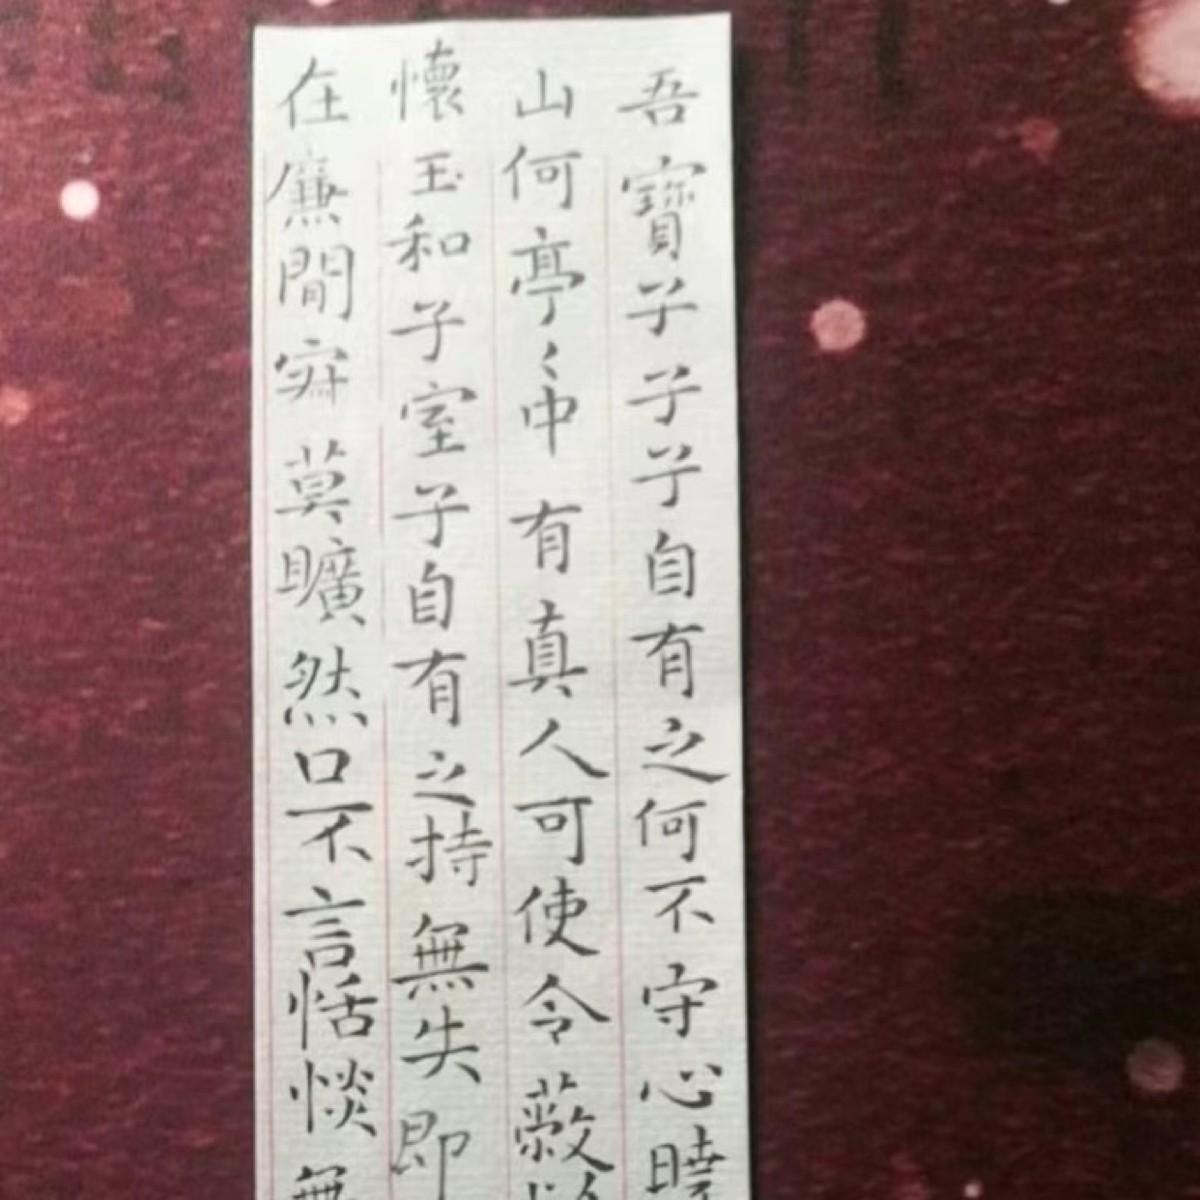 吾寶子子子自有之何不守心曉
山何亭〻中有真人可使令蔽
懷玉和子室子自有之持無失即
在廉間寂莫曠然口不言恬惔無